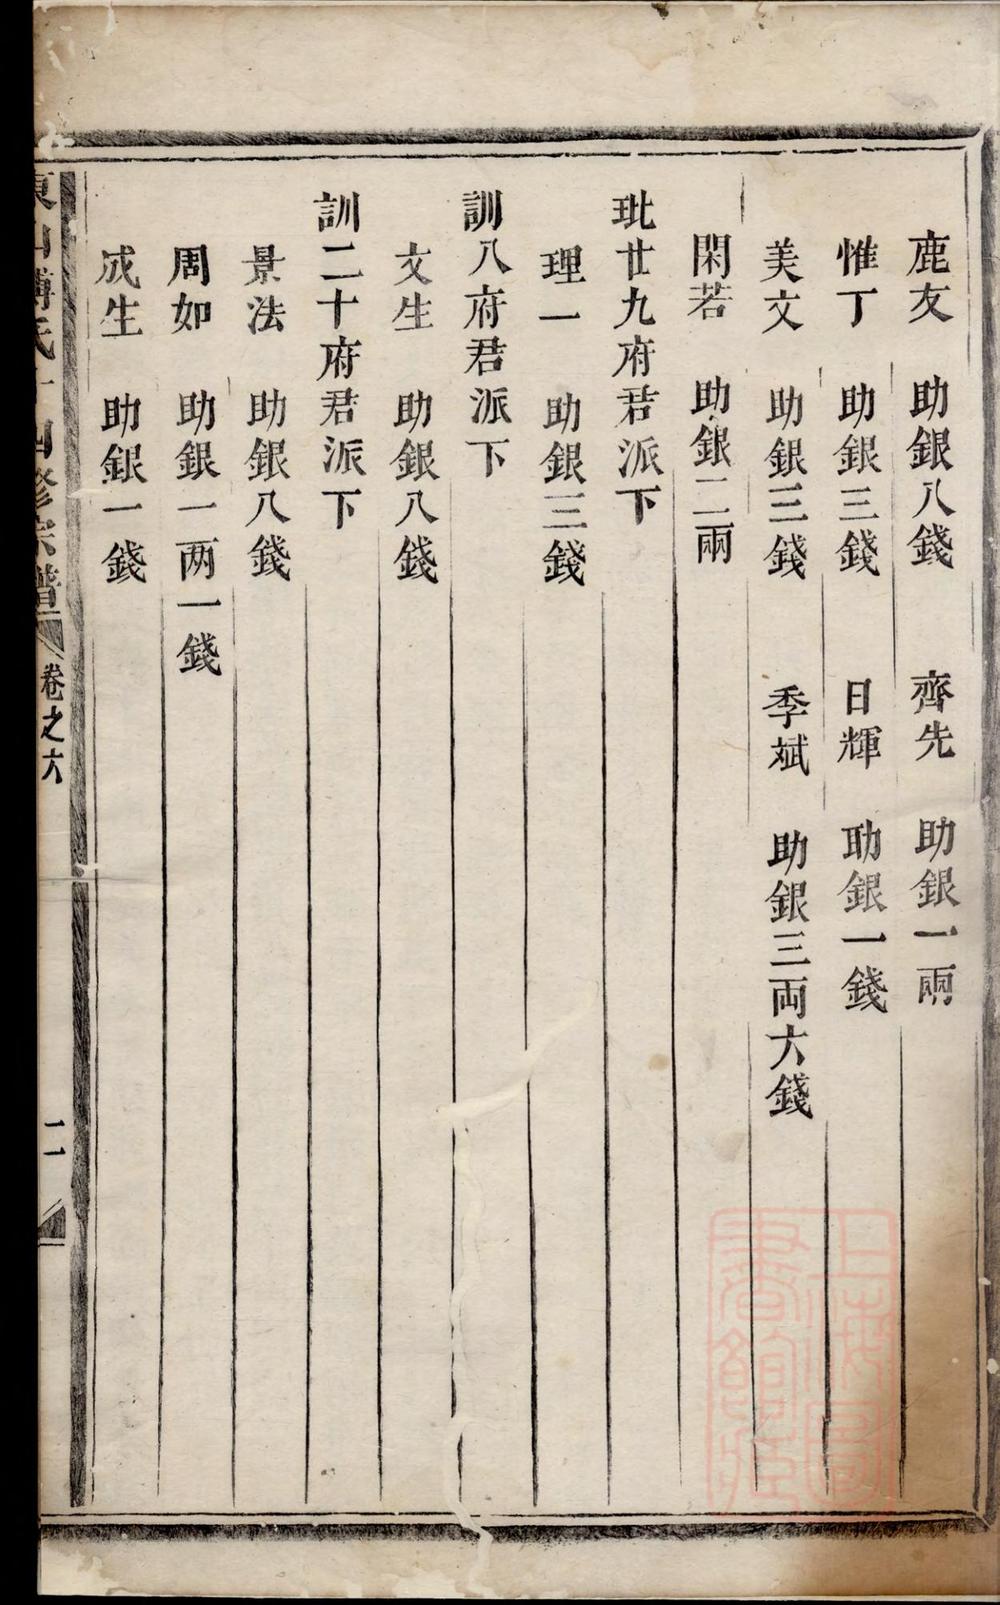 鹿友　助銀八錢　齊先　助銀一兩
惟丁　助銀三錢　日輝　助銀一錢
美文　助銀三錢　季斌　助銀三両六錢
閑若　助銀二兩
玭廿九府君派下
理一　助銀三錢
訓八府君派下
文生　助銀八錢
訓二十府君派下
景法　助銀八錢
周如　助銀一两一錢
成生　助銀一錢
東山傅氏十四修宗譜　卷之六　二
上海圖書館藏